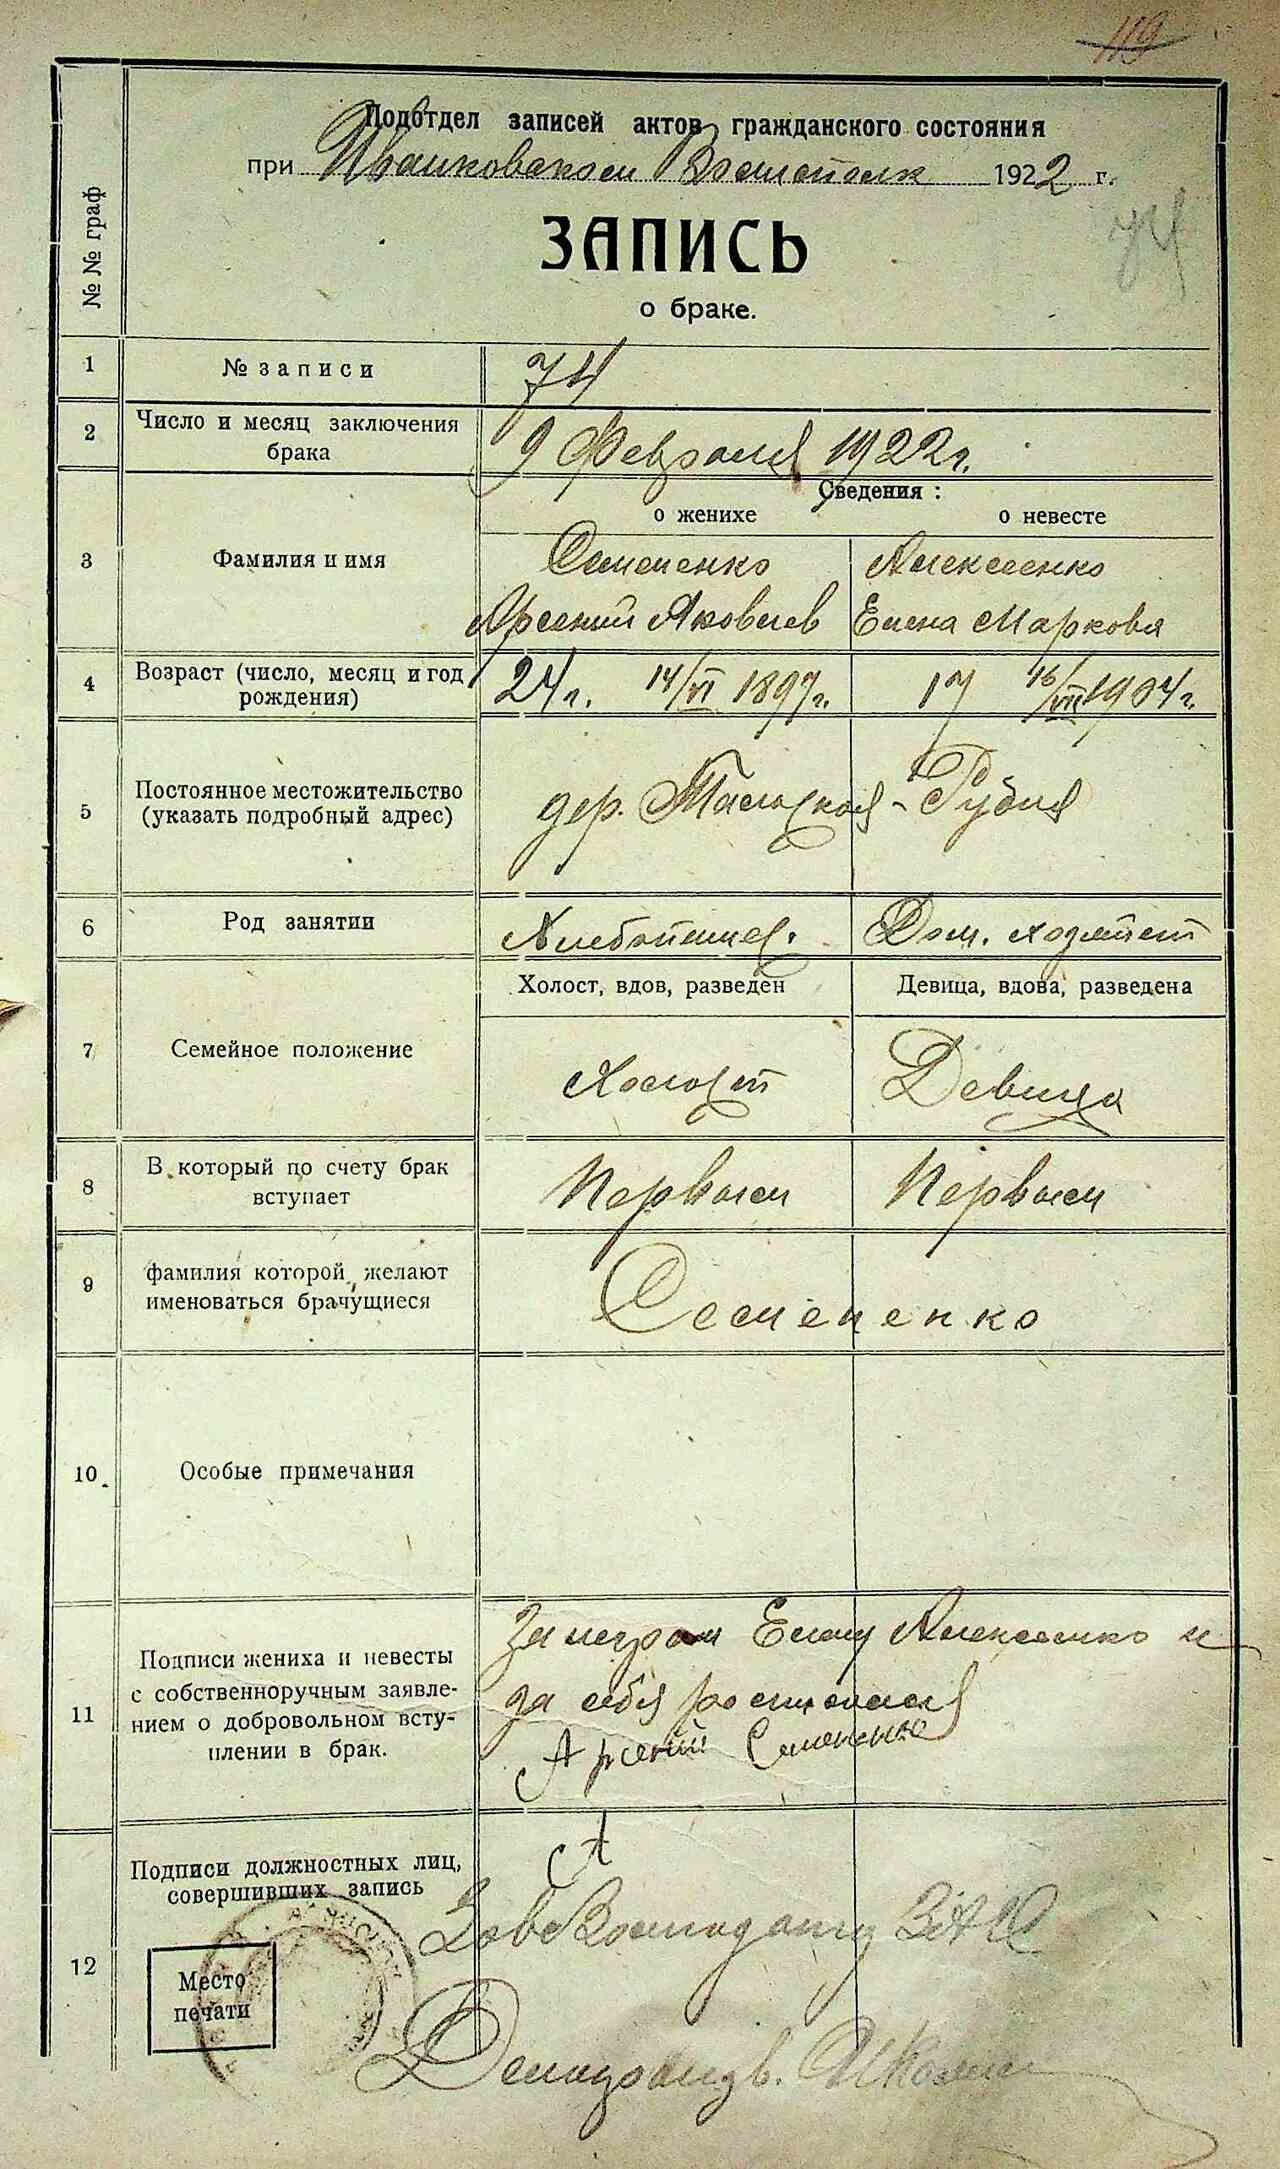 119
Подотдел записей актов гражданского состояния
при Иванковском Волисполк 1922 г.
74
ЗАПИСЬ
о браке.
№ № граф
1 № записи 74
2 Число и месяц заключения брака 9 Февраля 1922 г.
Сведения:
о женихе о невесте
3 Фамилия и имя
Семененко Алексеенко
Арсений Яковлев Елена Маркова
4 Возраст (число, месяц и год рождения) 24 г. 14/VI 1897 г. 17 16/VII 1904 г.
5 Постоянное местожительство (указать подробный адрес)
дер. Рудня
6 Род занятии Хлебопашец. Дом. хозяйст
Холост, вдов, разведен Девица, вдова, разведена
7 Семейное положение
Холост Девица
8 В который по счету брак вступает Первым Первым
9 фамилия которой желают именоваться брачущиеся
Семененко
10 Особые примечания
11 Подписи жениха и невесты с собственноручным заявлением о добровольном вступлении в брак.
Елену Алексеенко и
за себя росписался
Арсений Семененко
12 Подписи должностных лиц, совершивших запись
А
Место печати